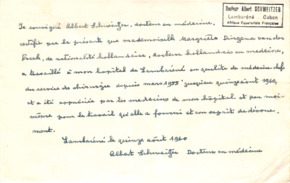 Docteur Albert SCHWEITZER
Lambaréné Gabon
Afrique Equatoriale Française
Je soussigné Albert Schweitzer, docteur en médecine,
certifie par la présente que mademoiselle Margrits
de nationalité hollandaise, docteur hollandais en médecine,
a travaillé à mon hôpital de Lambaréné en qualité de médecin chef
du service de chirurgie depuis mars 1955 jusqu'en 1960,
et a été par les médecins de mon hôpital et par moi-
même pour le travail qu'elle a fourni et son esprit de
ment.
Lambaréné le quinze août 1960
Albert Schweitzer Docteur en médecine